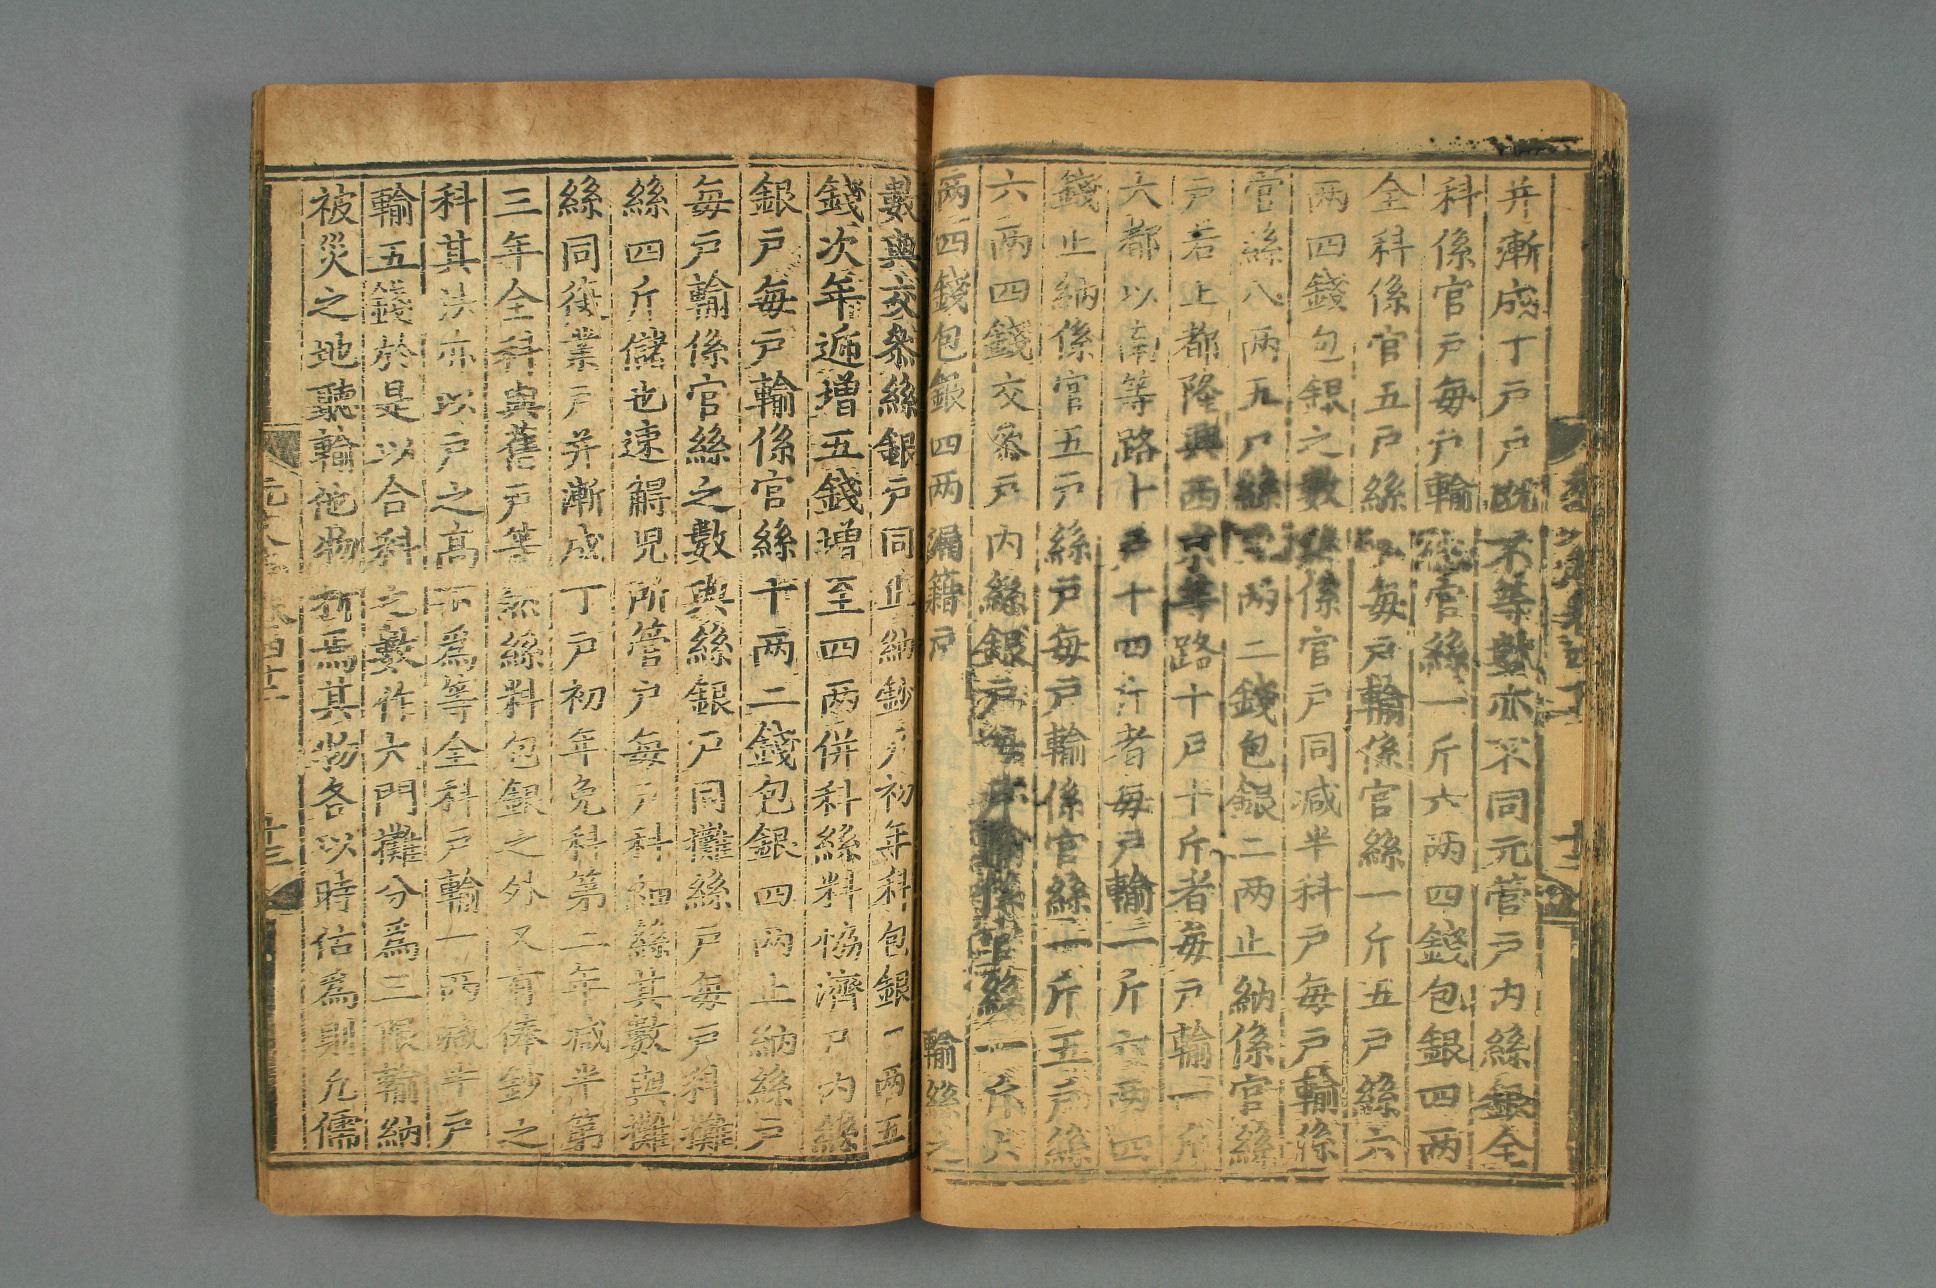 并漸成丁戸戸既不等數亦不同元管戸内絲銀全
科係官戸每戸輸係官絲一斤六两四錢包銀四两
全科係官五戸絲戸每戸輸係官絲一斤五戸絲六
两四錢包銀之數與係官戸同減半科戸每戸輸係
官絲八两五戸絲三两二錢包銀二两止納係官絲
戸若上都隆興西京等路十戸十斤者每戸輸一斤
大都以南等路十戸十四斤者每戸輸一斤六两四
錢止納係官五戸絲戸每戸輸係官絲一斤五戸絲
六两四錢交叅戸内絲銀戸每戸輸係官絲一斤六
两四錢包銀四两漏籍戸輸絲之
數與交叅絲銀戸同止納鈔戸初年科包銀一两五
錢次年遞增五錢增至四两併科絲料恊濟戸内絲
銀戸每戸輸係官絲十两二錢包銀四两止納絲戸
每戸輸係官絲之數與絲銀戸同攤絲戸每戸科攤
絲四斤儲也速䚟児所管戸每戸科細絲其數與攤
絲同復業戸并漸成丁戸初年免科第二年減半第
三年全科與舊戸等然絲料包銀之外又有俸鈔之
科其法亦以戸之高下爲等全科戸輸一两減半戸
輸五錢於是以合科之數作大門攤分爲三限輸納
被災之地聽輸他物折焉其物各以時估爲則凡儒